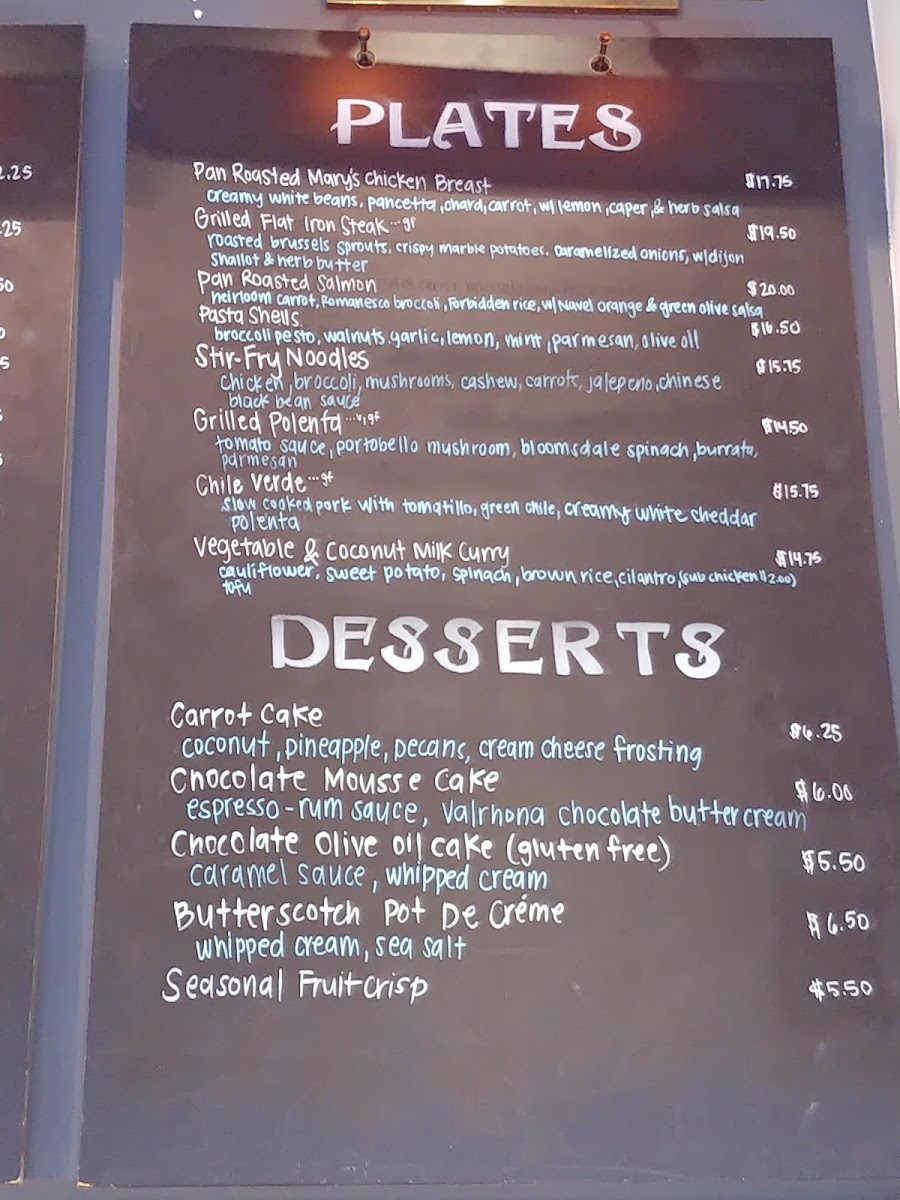 PLATES
Pan Roasted Mary's Chicken Breast $17.75
creamy white beans, pancetta, chard, carrot, w/ lemon, caper, & herb salsa
Grilled Flat Iron Steak ...gf $19.50
roasted brussels sprouts, crispy marble potatoes, caramelized onions, w/dijon
shallot & herb butter
Pan Roasted Salmon $20.00
heirloom carrot, Romanesco broccoli, Forbidden rice, w/ Navel orange & green olive salsa
Pasta Shells $16.50
broccoli pesto, walnuts, garlic, lemon, mint, parmesan, olive oil
Stir-Fry Noodles $15.75
chicken, broccoli, mushrooms, cashew, carrots, jalepeno, chinese
black bean sauce
Grilled Polenta ...v,gf $14.50
tomato sauce, portobello mushroom, bloomsdale spinach, burrata,
parmesan
Chile Verde ...gf $15.75
slow cooked pork with tomatillo, green chile, creamy white cheddar
polenta
Vegetable & Coconut Milk Curry $14.75
cauliflower, sweet potato, spinach, brown rice, cilantro, (sub chicken $2.00)
tofu
DESSERTS
Carrot Cake $6.25
coconut, pineapple, pecans, cream cheese frosting
Chocolate Mousse Cake $6.00
espresso-rum sauce, Valrhona chocolate butter cream
Chocolate Olive oil cake (gluten free) $5.50
caramel sauce, whipped cream
Butterscotch Pot De Créme $6.50
whipped cream, sea salt
Seasonal Fruit crisp $5.50
2.25
.25
50